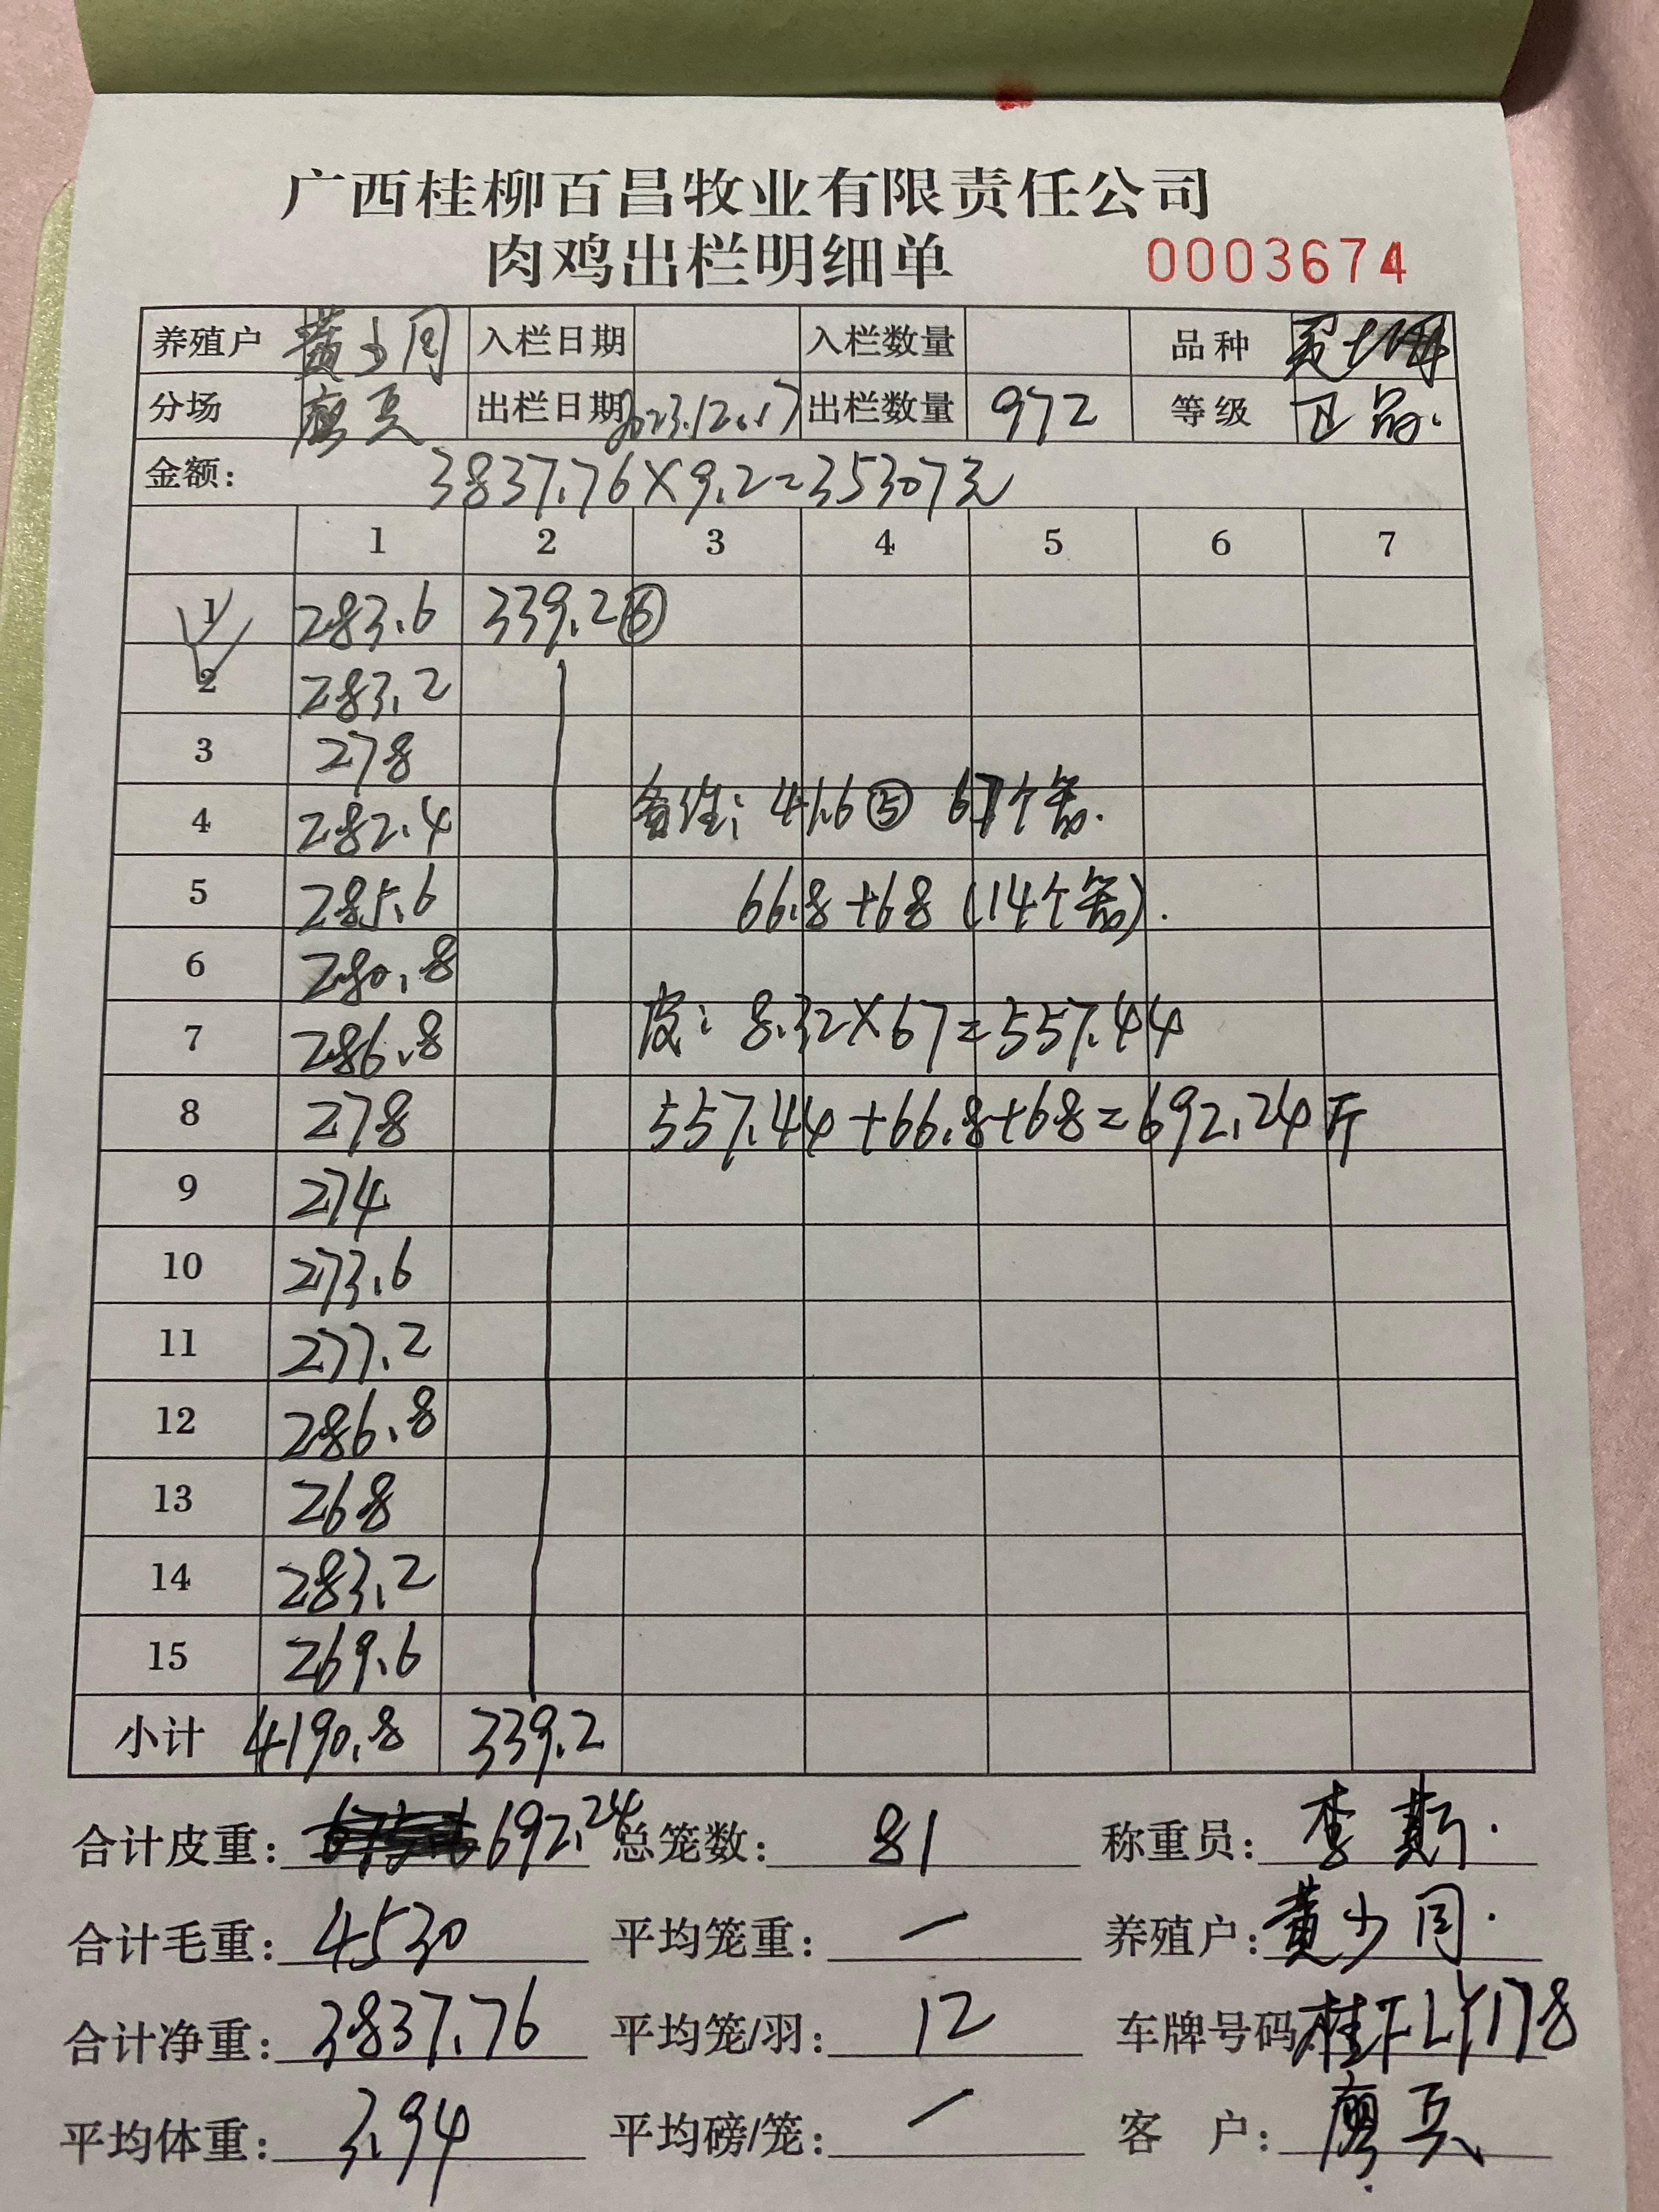 广西桂柳百昌牧业有限责任公司
肉鸡出栏明细单 0003674
养殖户 黄少同 入栏日期 入栏数量 品种
分场 廖兵 出栏日期 2023.12.17 出栏数量 972 等级 正品.
金额: 3837.76×9.2=35307元
1 2 3 4 5 6 7
1 283.6 339.2⑥
2 283.2
3 278
4 282.4 备注: 41.6⑤ 67个笼.
5 285.6 66.8+68 (14个笼).
6 280.8
7 286.8 皮: 8.32×67=557.44
8 278 557.44+66.8+68=692.24斤
9 274
10 273.6
11 277.2
12 286.8
13 268
14 283.2
15 269.6
小计 4190.8 339.2
合计皮重: 692.24 总笼数: 81 称重员: 李斯.
合计毛重: 4530 平均笼重: 一 养殖户: 黄少同.
合计净重: 3837.76 平均笼/羽: 12 车牌号码: 桂FLY178
平均体重: 3.94 平均磅/笼: 一 客户: 廖兵